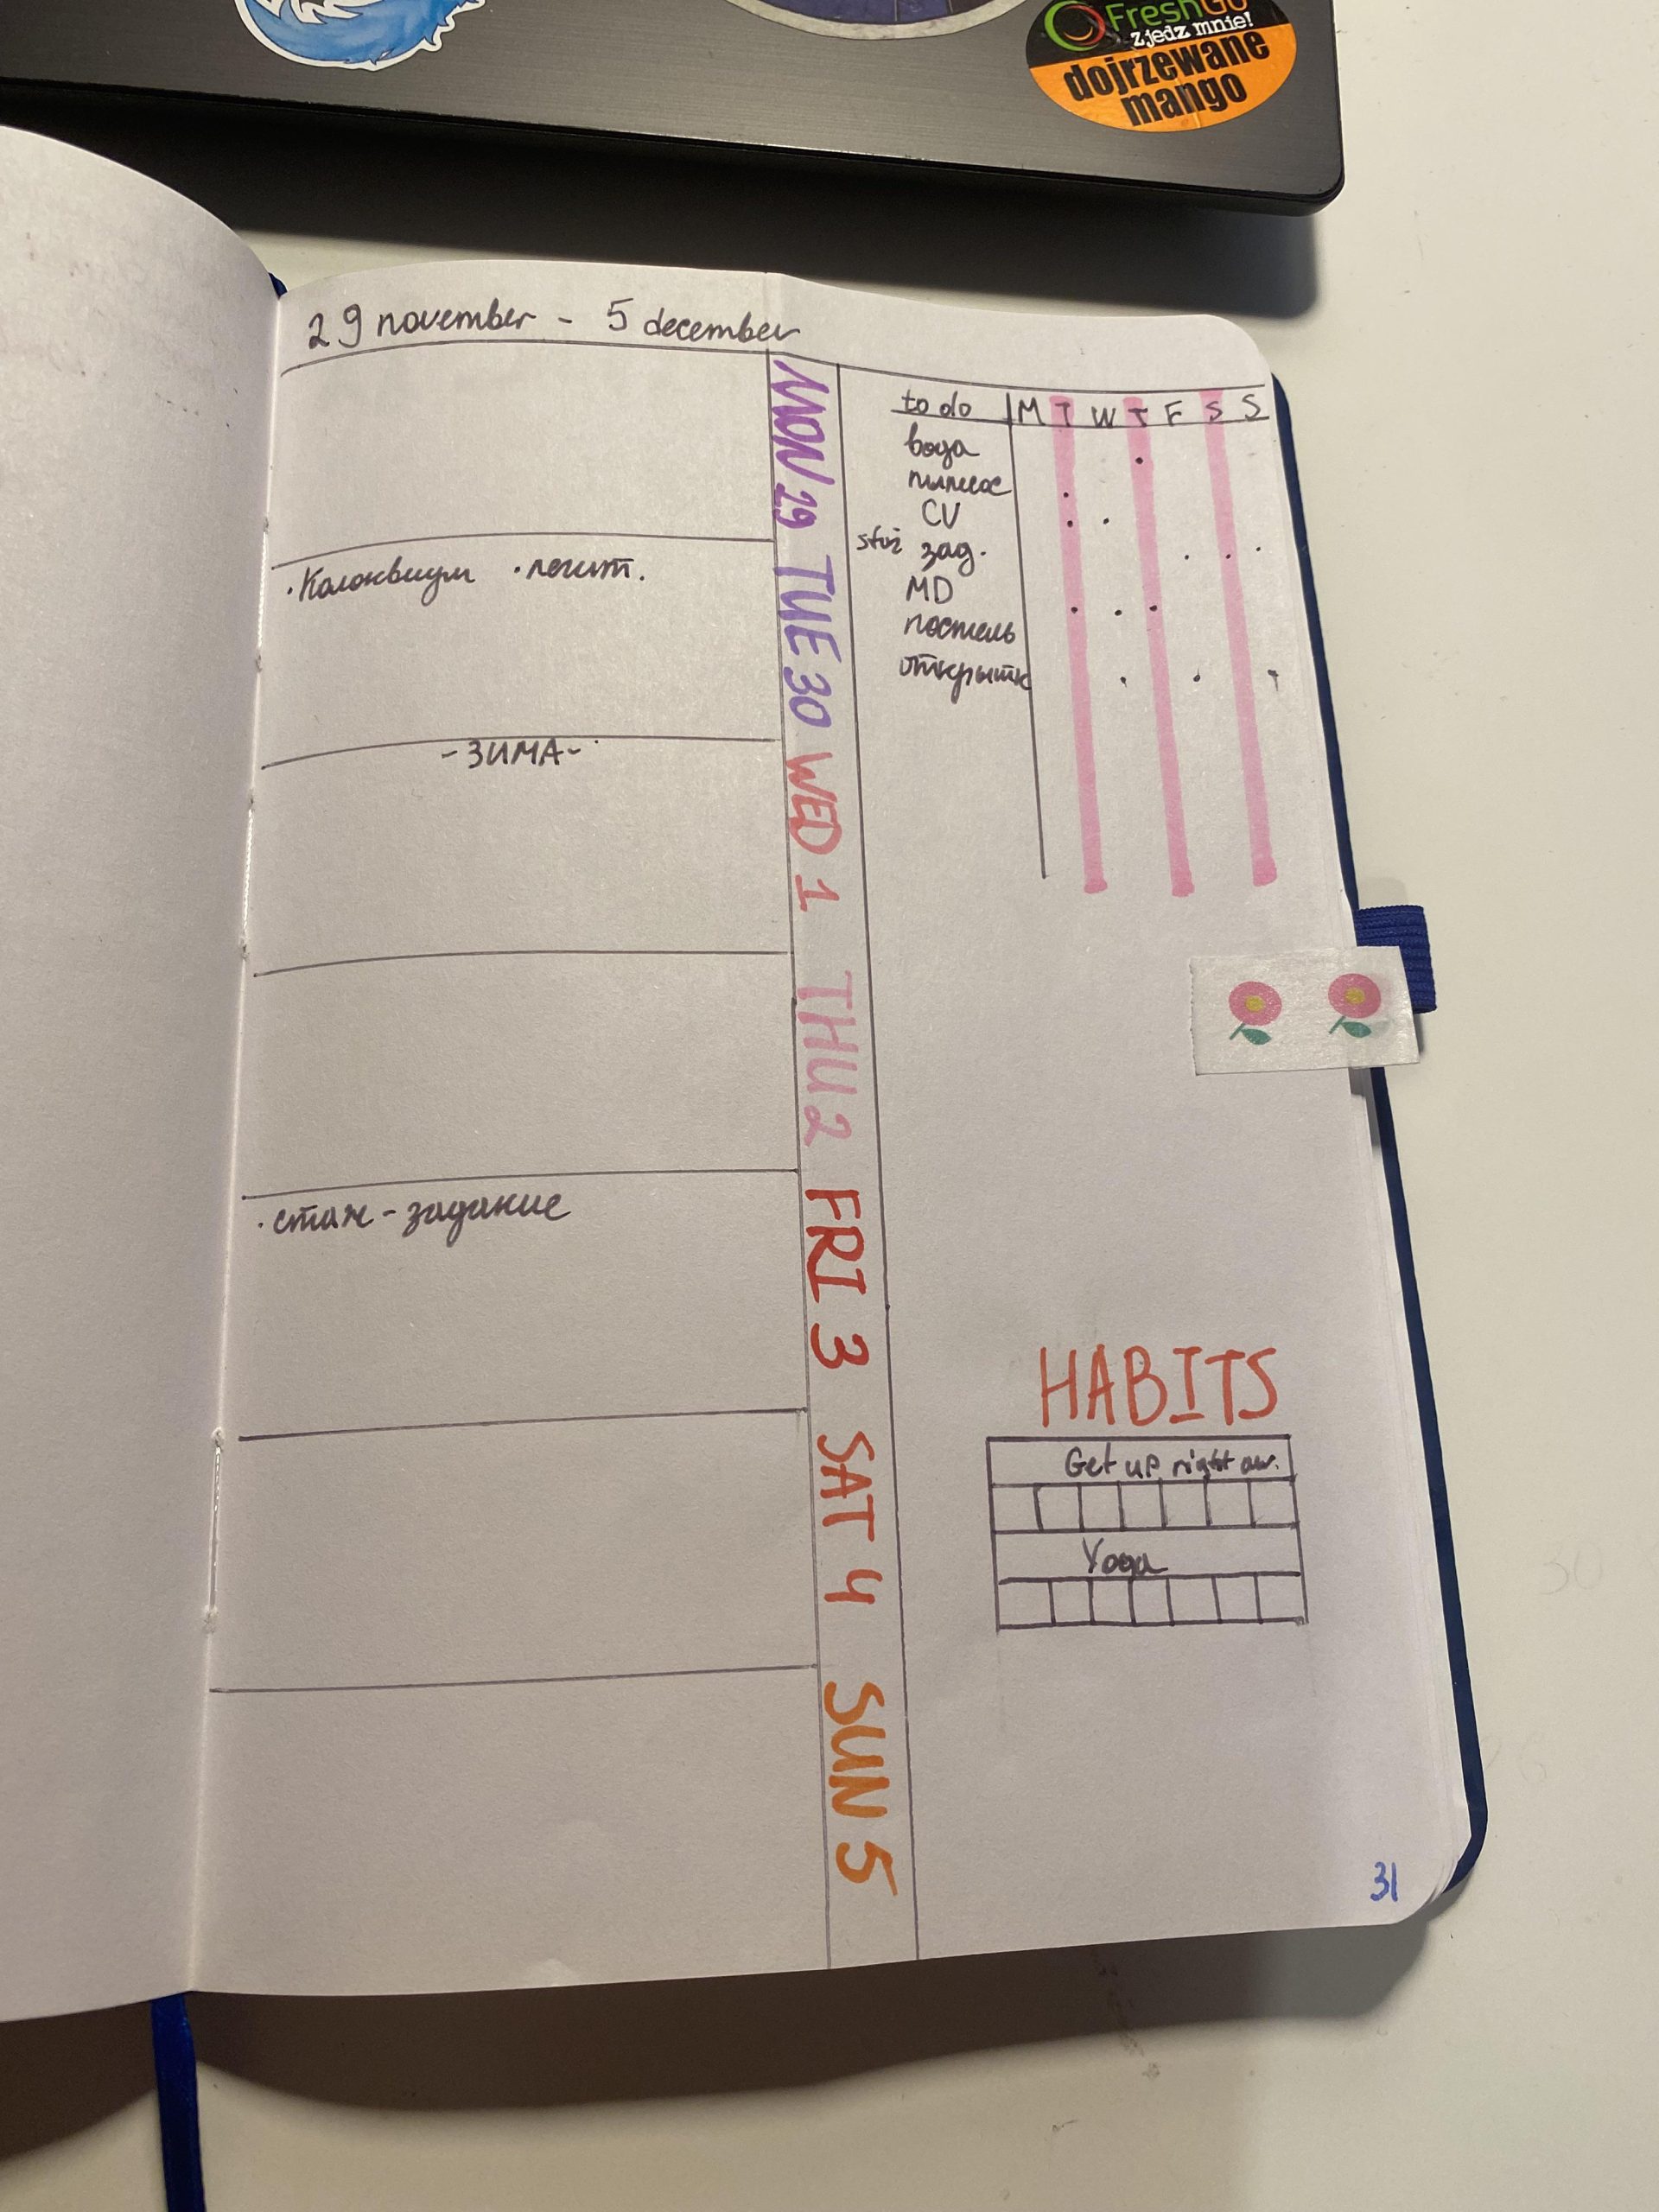 FreshGo
zjedz mnie!
dojrzewane
mango
29 november - 5 december
MON 29
TUE 30
· Колоквиум · легит.
WED 1
- ЗИМА -
THU 2
FRI 3
· стаж - задание
SAT 4
SUN 5
to do M T W T F S S
вода
пылесос
CV
staż зад.
MD
постель
открытк
HABITS
Get up right aw.
Yoga
31